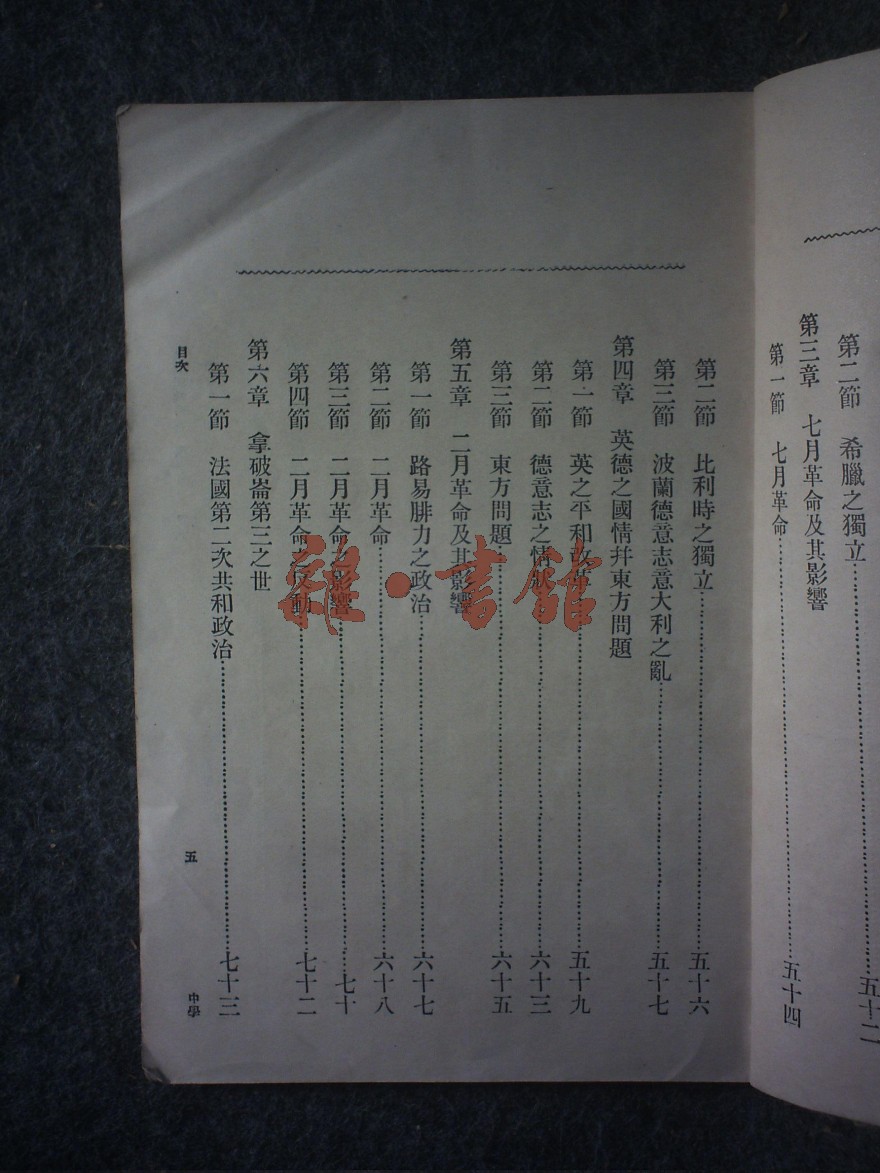 第二節 希臘之獨立……五十二
第三章 七月革命及其影響
第一節 七月革命……五十四
第二節 比利時之獨立……五十六
第三節 波蘭德意志意大利之亂……五十七
第四章 英德之國情幷東方問題
第一節 英之平和改革……五十九
第二節 德意志之情狀……六十三
第三節 東方問題……六十五
第五章 二月革命及其影響
第一節 路易腓力之政治……六十七
第二節 二月革命……六十八
第三節 二月革命之影響……七十
第四節 二月革命之反動……七十二
第六章 拿破崙第三之世
第一節 法國第二次共和政治……七十三
目次 五 中學
雜·書館